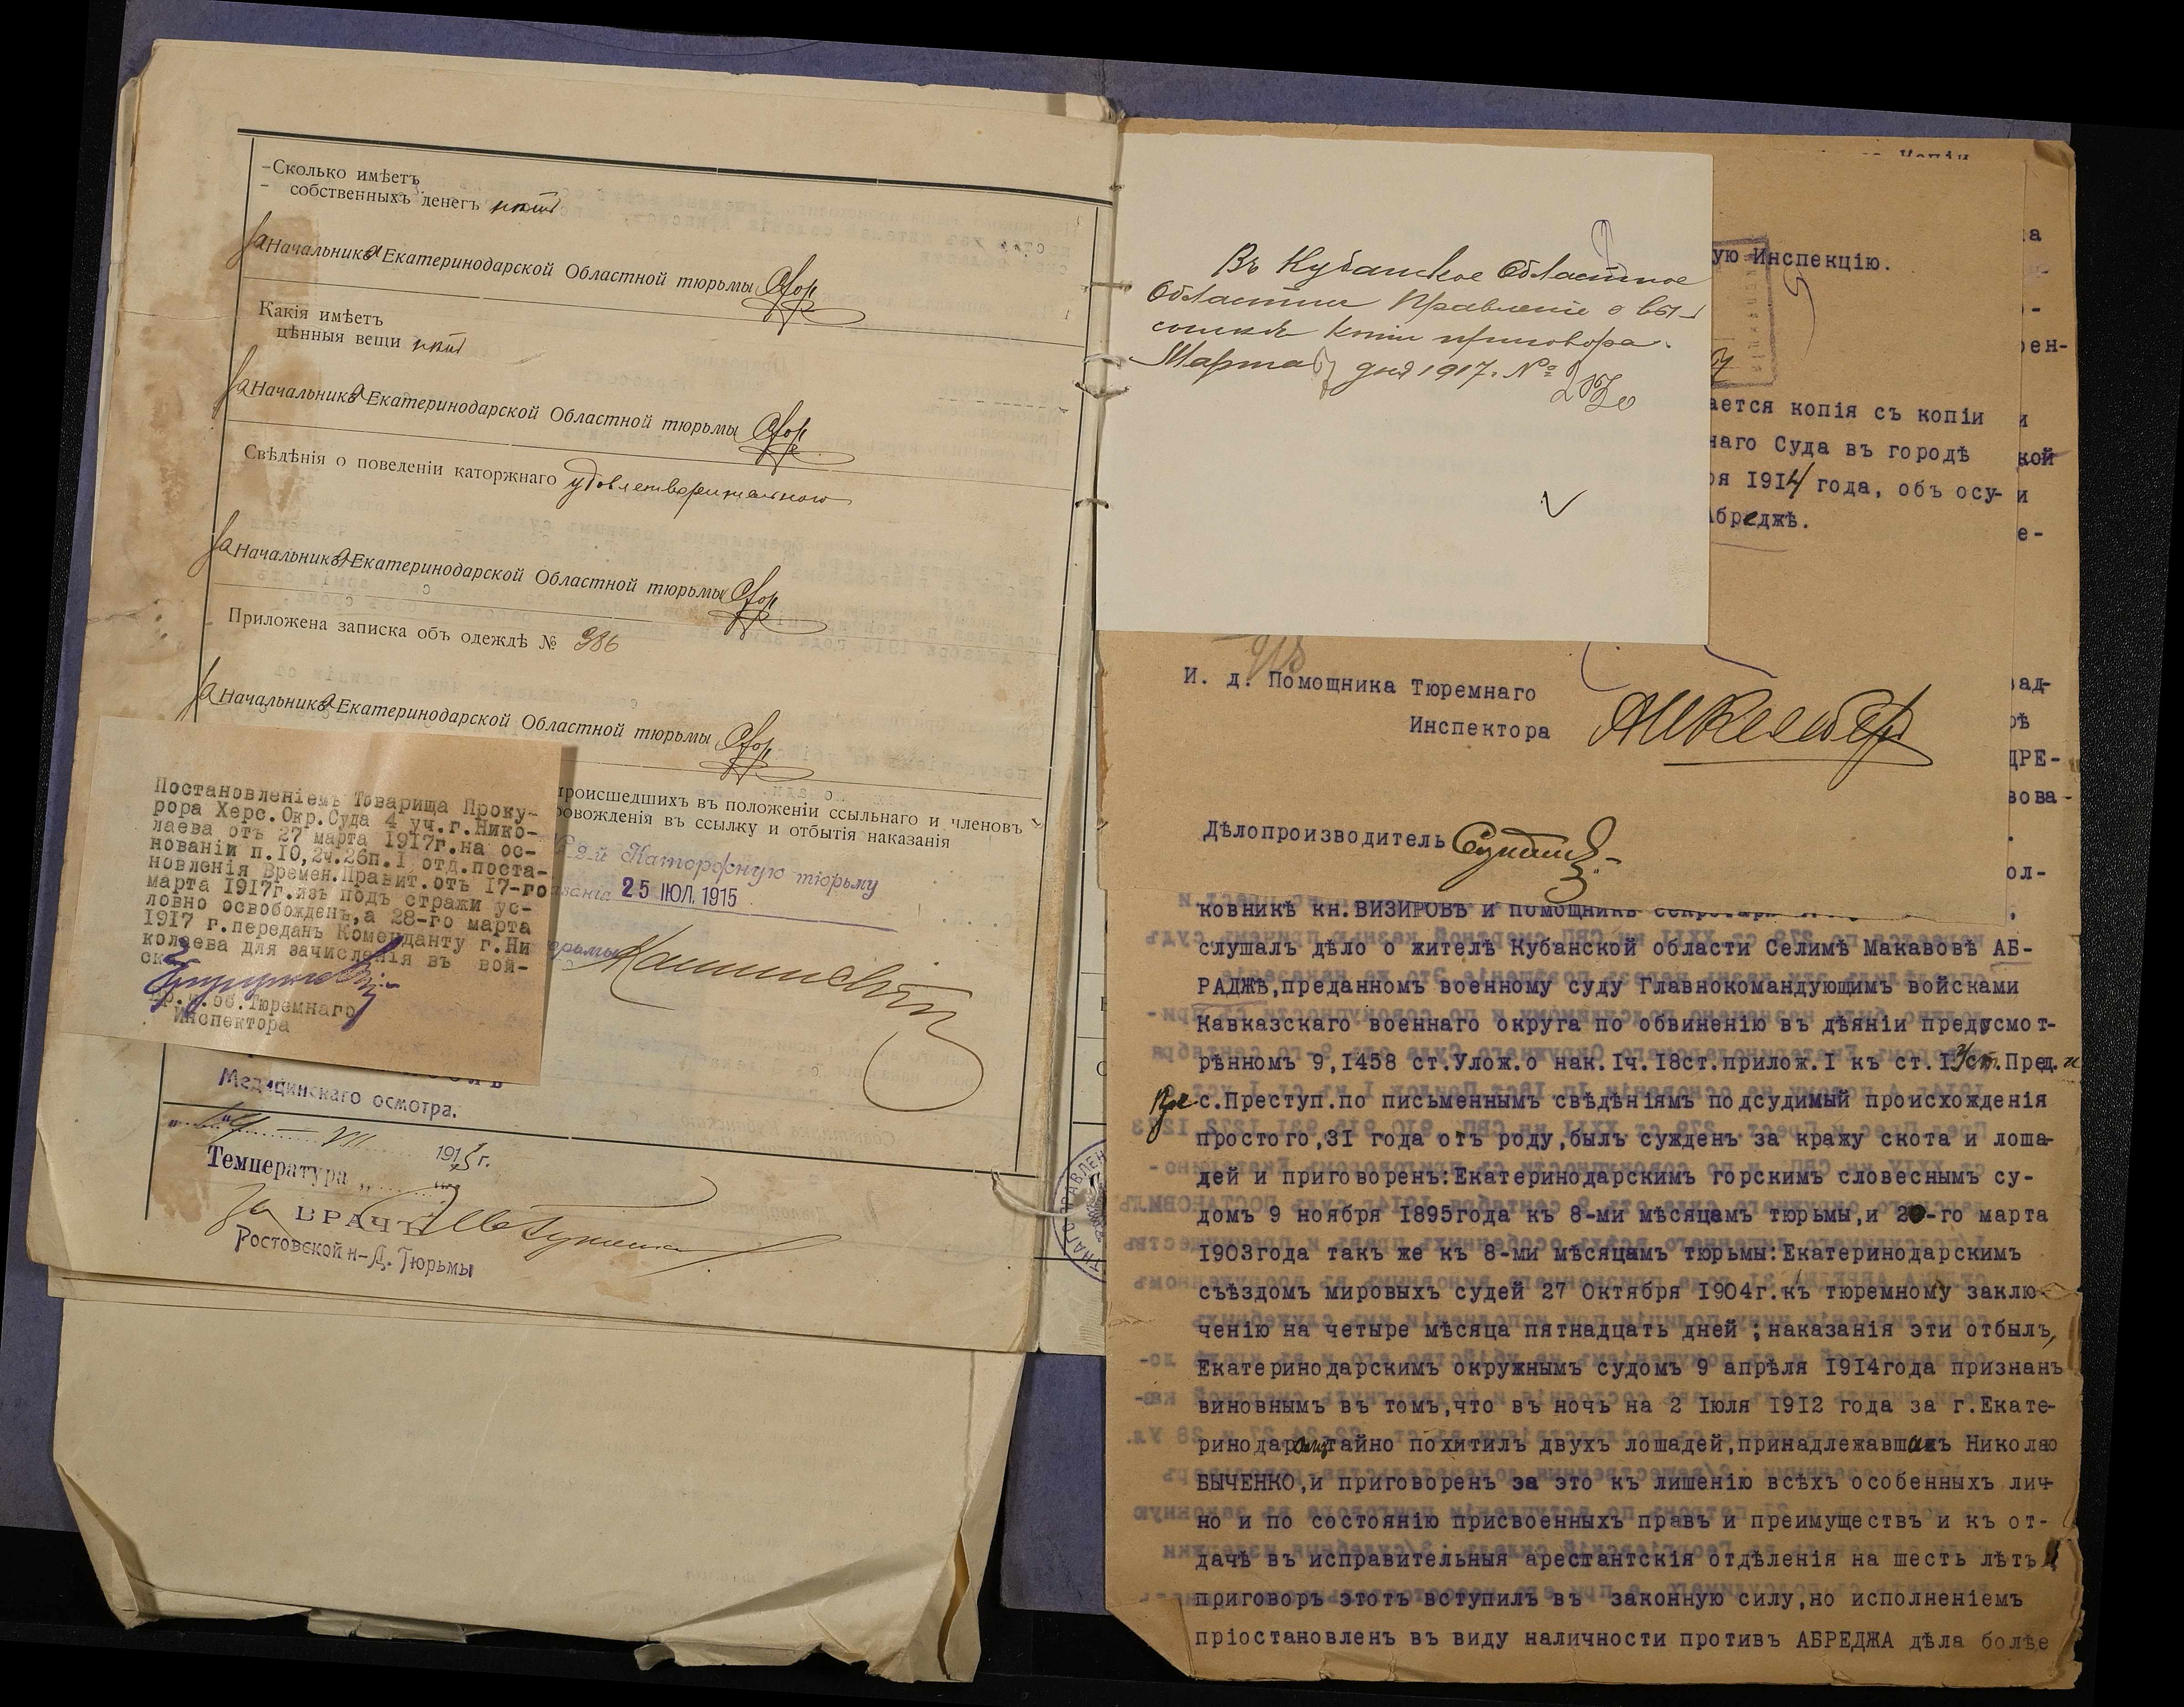 -Сколько имѣетъ
- собственныхъ денегъ нѣтъ
За Начальника Екатеринодарской Областной тюрьмы
Какія имѣетъ
цѣнныя вещи нѣтъ
За Начальника Екатеринодарской Областной тюрьмы
Свѣдѣнія о поведеніи каторжнаго удовлетворительного
За Начальника Екатеринодарской Областной тюрьмы
Приложена записка объ одеждѣ № 986
За Начальника Екатеринодарской Областной тюрьмы
происшедшихъ въ положеніи ссыльнаго и членовъ
ровожденія въ ссылку и отбытія наказанія
2-й Каторжную тюрьму
25 ІЮЛ. 1915
Постановленіемъ Товарища Проку-
рора Херс.Окр.Суда 4 уч.г.Нико-
лаева отъ 27 марта 1917г.на ос-
нованіи п.10,2ч.26п.I отд.поста-
новленія Времен.Правит.отъ 17-го
марта 1917г.изъ подъ стражи ус-
ловно освобожденъ,а 28-го марта
1917 г.переданъ Коменданту г.Ни
колаева для зачисленія въ вой-
ск
Вр.и.об.Тюремнаго
Инспектора
Медицинскаго осмотра.
VII 1915 г.
Температура
За ВРАЧЪ
Ростовской н-Д. Тюрьмы
Въ Кубанское Областное
Областное Правленіе о вы-
сылкѣ копіи приговора.
Марта 7 дня 1917. №
Копіи
ую Инспекцію.
ается копія съ копіи
наго Суда въ городѣ
ря 1914 года, объ осу-
Абреджѣ.
И. д. Помощника Тюремнаго
Инспектора
Дѣлопроизводитель
ковникѣ кн.ВИЗИРОВЪ и помощникъ
слушалъ дѣло о жителѣ Кубанской области Селимѣ Макавовѣ АБ-
РАДЖѢ,преданномъ военному суду Главнокомандующимъ войсками
Кавказскаго военнаго округа по обвиненію въ дѣяніи предусмот-
рѣнномъ 9,1458 ст.Улож.о нак.Iч.18ст.прилож.I къ ст.1 ст.Пред.и
Пре с.Преступ.по письменнымъ свѣдѣніямъ подсудимый происхожденія
простого,31 года отъ роду,былъ сужденъ за кражу скота и лоша-
дей и приговоренъ:Екатеринодарскимъ горскимъ словеснымъ су-
домъ 9 ноября 1895года къ 8-ми мѣсяцамъ тюрьмы,и 20-го марта
1903года такъ же къ 8-ми мѣсяцамъ тюрьмы:Екатеринодарскимъ
съѣздомъ мировыхъ судей 27 Октября 1904г.къ тюремному заклю-
ченію на четыре мѣсяца пятнадцать дней ;наказанія эти отбылъ,
Екатеринодарскимъ окружнымъ судомъ 9 апрѣля 1914года признанъ
виновнымъ въ томъ,что въ ночь на 2 Іюля 1912 года за г.Екате-
ринодаромъ тайно похитилъ двухъ лошадей,принадлежавшихъ Николаю
БЫЧЕНКО,и приговоренъ за это къ лишенію всѣхъ особенныхъ лич-
но и по состоянію присвоенныхъ правъ и преимуществъ и къ от-
дачѣ въ исправительныя арестантскія отдѣленія на шесть лѣтъ
приговоръ этотъ вступилъ въ законную силу,но исполненіемъ
пріостановленъ въ виду наличности противъ АБРЕДЖА дѣла болѣе